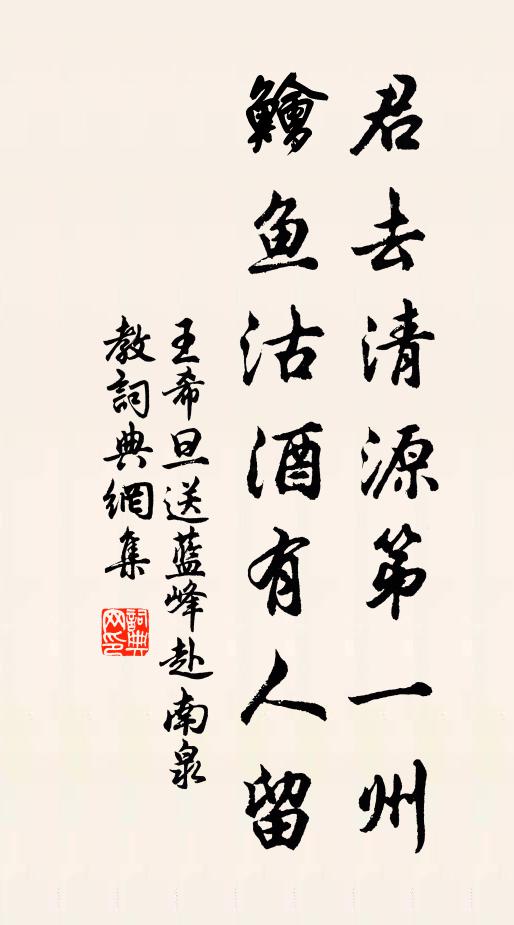 君去清源第一州
鱠鱼沽酒有人留
王希旦送蓝峰赴南泉
教詞典網集
詞典网印